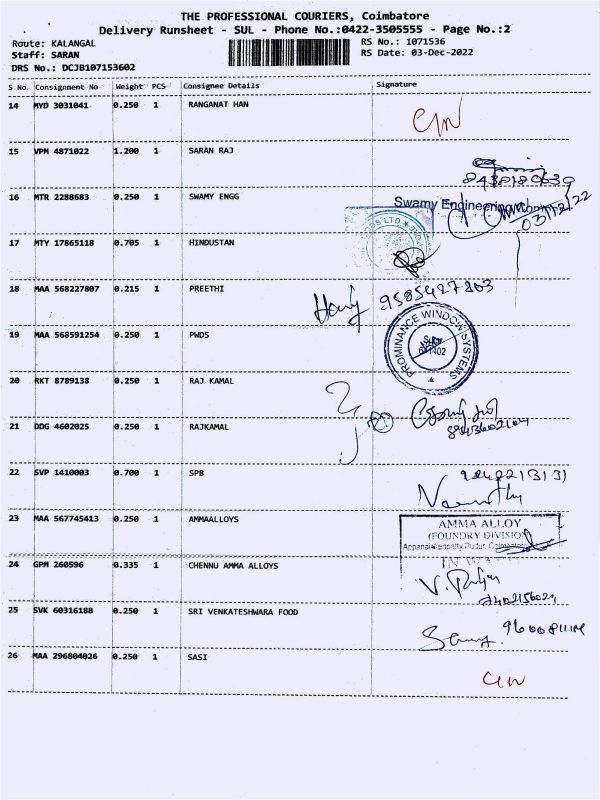 THE PROFESSIONAL COURIERS, Coimbatore
Delivery Runsheet - SUL - Phone No.:0422-3505555 - Page No.:2
Route: KALANGAL
RS No.: 1071536
Staff: SARAN
RS Date: 03-Dec-2022
DRS No.: DCJB107153602
S No. Consignment No Weight PCS Consignee Details Signature
14 MYD 3031041 0.250 1 RANGANAT HAN
15 VPM 4871022 1.200 1 SARAN RAJ
16 MTR 2288683 0.250 1 SWAMY ENGG
Swamy Engineering
03/12/22
17 MTY 17865118 0.705 1 HINDUSTAN
18 MAA 568227807 0.215 1 PREETHI
19 MAA 568591254 0.250 1 PWDS
PROMINANCE WINDOW SYSTEMS
20 RKT 8789138 0.250 1 RAJ KAMAL
21 DDG 4602025 0.250 1 RAJKAMAL
22 SVP 1410003 0.700 1 SPB
23 MAA 567745413 0.250 1 AMMAALLOYS
AMMA ALLOY
(FOUNDRY DIVISION
24 GPM 260596 0.335 1 CHENNU AMMA ALLOYS
25 SVK 60316188 0.250 1 SRI VENKATESHWARA FOOD
26 MAA 296804026 0.250 1 SASI